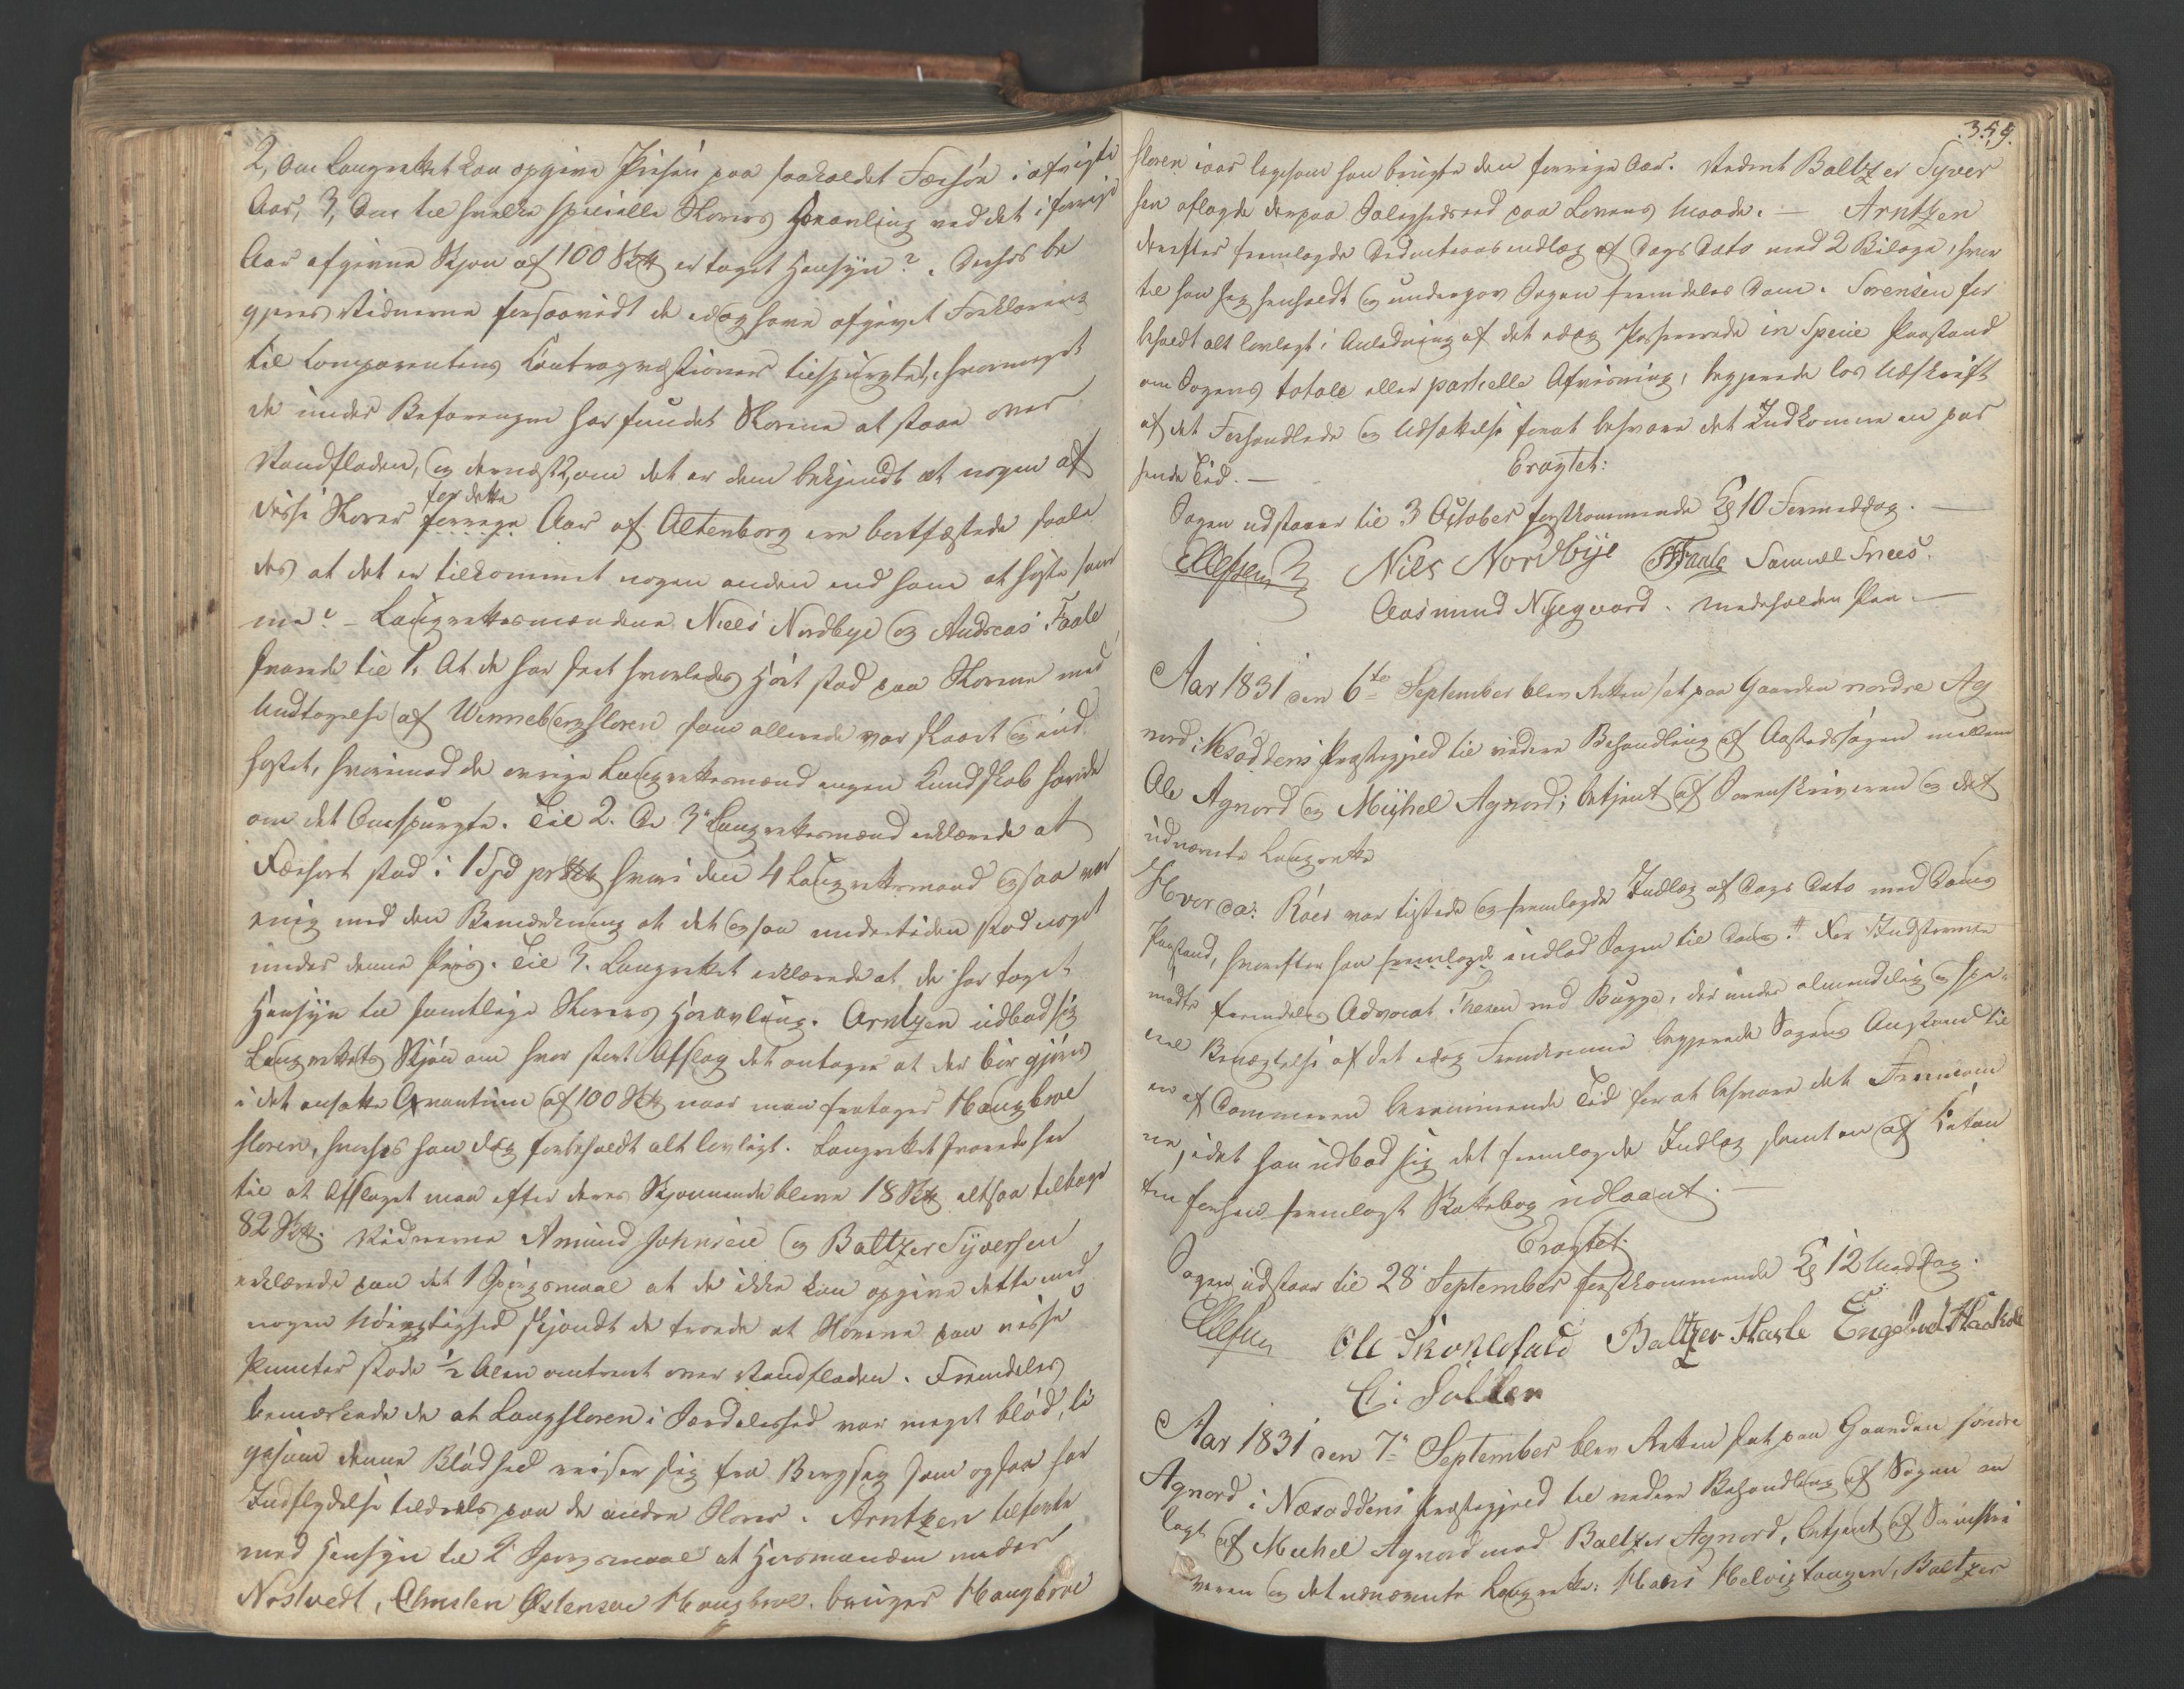 2, Om Laugrettet kan opgive Prisen paa saakaldet Færhøe i afvigte
Aar, 3, Om til hvilke specielle Slorers Høeavling ved det i forrige
Aar afgivne Skjøn af 100 er taget Hensyn? Derhos be
gjæres Vidnerne forsaavidt de idag have afgivet Forklaring
til Comparentens Contraqvæstioner tilspurgte, hvormeget
de under Befaringen har fundet Slorene at staae over
Vandfladen, og dernæst, om det er dem bekjendt at nogen af
disse Slorer før dette forrige Aar af Altenborg ere bortfæstede saale
des at det er tilkommet nogen anden end ham at høste sam
me? – Laugrettesmændene Niels Nordbye og Andreas Faale
svarede til 1, At de har seet hvorledes Höet stod paa Slorene med
Undtagelse af Wennebergsloren som allerede var skaaret og ind
høstet, hvorimod de øvrige Laugrettesmænd ingen Kundskab havde
om det Omspurgte. Til 2. De 3 Laugrettesmænd erklærede at
Færhøet stod i 1 Spd pr hvori den 4 Laugrettesmand ogsaa var
enig med den Bemærkning at det ogsaa undertiden stod noget
under denne Priis. Til 3. Laugrettet erklærede at de har taget
Hensyn til samtlige Slorers Høeavling. Arntzen udbad sig
Laugrettets Skjøn om hvor stort Afslag det antager at der bör gjøres
i det ansatte Qvantum af 100 naar man fratager Haugbroe
sloren, hvorhos han dog forbeholdt alt lovligt. Laugrettet svarede her
til at Afslaget maa efter deres Skjønnende blive 18 altsaa tilbage
82. Vidnerne Amund Johnsen og Baltzer Syversen
erklærede paa det 1 Spörgsmaal at de ikke kan opgive dette med
nogen Nöiagtighed skjøndt de troede at Slorene paa visse
Puncter stode ½ Alen omtrent over Vandfladen. Fremdeles
bemærkede de at Langsloren i Særdeleshed var meget blöd, li
gesom denne Blödhed reiser sig fra Bergseg som ogsaa har
Indflydelse tildeels paa de andre Slorer. Arntzen tilførte
med Hensyn til 2 Spørgsmaal at Huusmanden under
Nøstvedt, Christen Østensen Haugbroe bruger Haugbroe
359.
sloren iaar ligesom han brugte den forrige Aar. Vidnet Baltzer Syver
sen aflagde derpaa Saligheds Eed paa Lovens Maade. — Arntzen
derefter fremlagde Deductions indlæg af Dags Dato med 2 Bilage, hvor
til han sig henholdt og undergav Sagen fremdeles Dom. Sørensen for
beholdt alt lovligt i Anledning af det idag Passerede in Specie Paastand
om Sagens totale eller partielle Afviisning, begjærede los Udskrift
af det Forhandlede og Udsættelse forat besvare det Indkomne en pas
sende Tid. —
Eragtet:
Sagen udstaaer til 3 October førstkommende Kl 10 Formiddag. —
Ellefsen Niels Nordbye AFaale Samuel Snees.
Aasmund Nygaard. medeholden Pen. —
Aar 1831 den 6te September blev Retten sat paa Gaarden nordre Ag
nord i Nesoddens Præstegjeld til videre Behandling af Aastedssagen mellem
Ole Agnord og Michel Agnord; betjent af Sorenskriveren og det
udnævnte Laugrette
Hvorda: Röer var tilstede og fremlagde Indlæg af Dags Dato med Doms
Paastand, hvorefter han fremlagde indlod Sagen til Doms. For Indstævnte
mødte fremdeles Advocat Ihelen ved Bugge, der under almindelig og spe-
ciel Benægtelse af det idag Fremkomne begjærede Sagens Anstand til
en af Dommeren berammende Tid for at besvare det Fremkom
ne, idet han udbad sig det fremlagde Indlæg samt en af Citan
ten forhen fremlagt Skattebog udlaant. —
Eragtet:
Sagen udstaar til 28 September førstkommende Kl 12 Middag.
Ellefsen Ole Skoklefald Baltzer Hasle Engebret Haakde
C: Solber
Aar 1831 den 7de September blev Retten sat paa Gaarden søndre
Agnord i Næsoddens Præstegjeld til videre Behandling af Sagen an
lagt af Michel Agnord mod Baltzer Agnord, betjent af Sorenskri
veren og det udnævnte Laugrette: Hans Helvigtangen, Baltzer